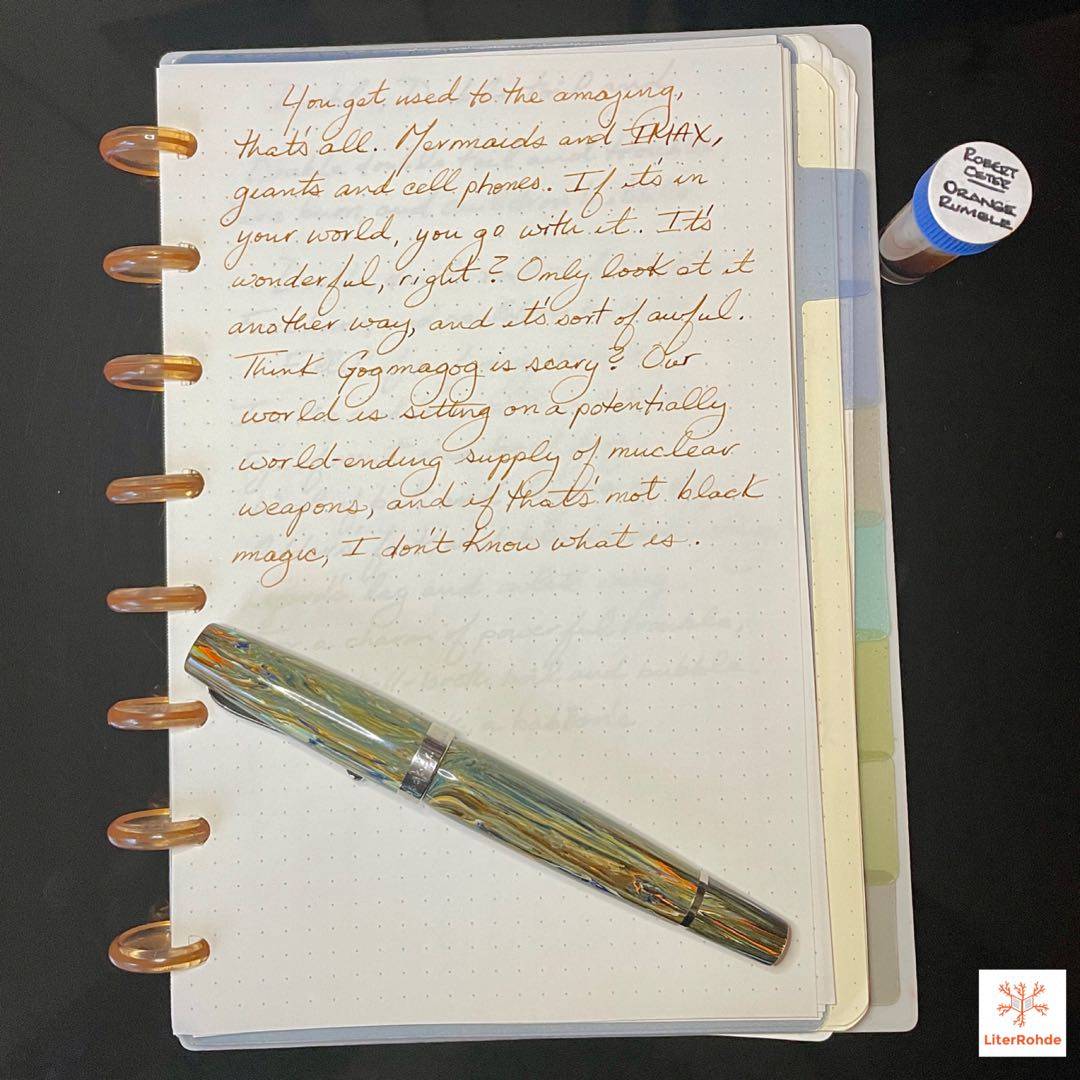 You get used to the amazing,
that's all. Mermaids and IMAX,
giants and cell phones. If it's in
your world, you go with it. It's
wonderful, right? Only look at it
another way, and it's sort of awful.
Think Gogmagog is scary? Our
world is sitting on a potentially
world-ending supply of nuclear
weapons, and if that's not black
magic, I don't know what is.
ROBERT
OSTER
ORANGE
RUMBLE
LiterRohde